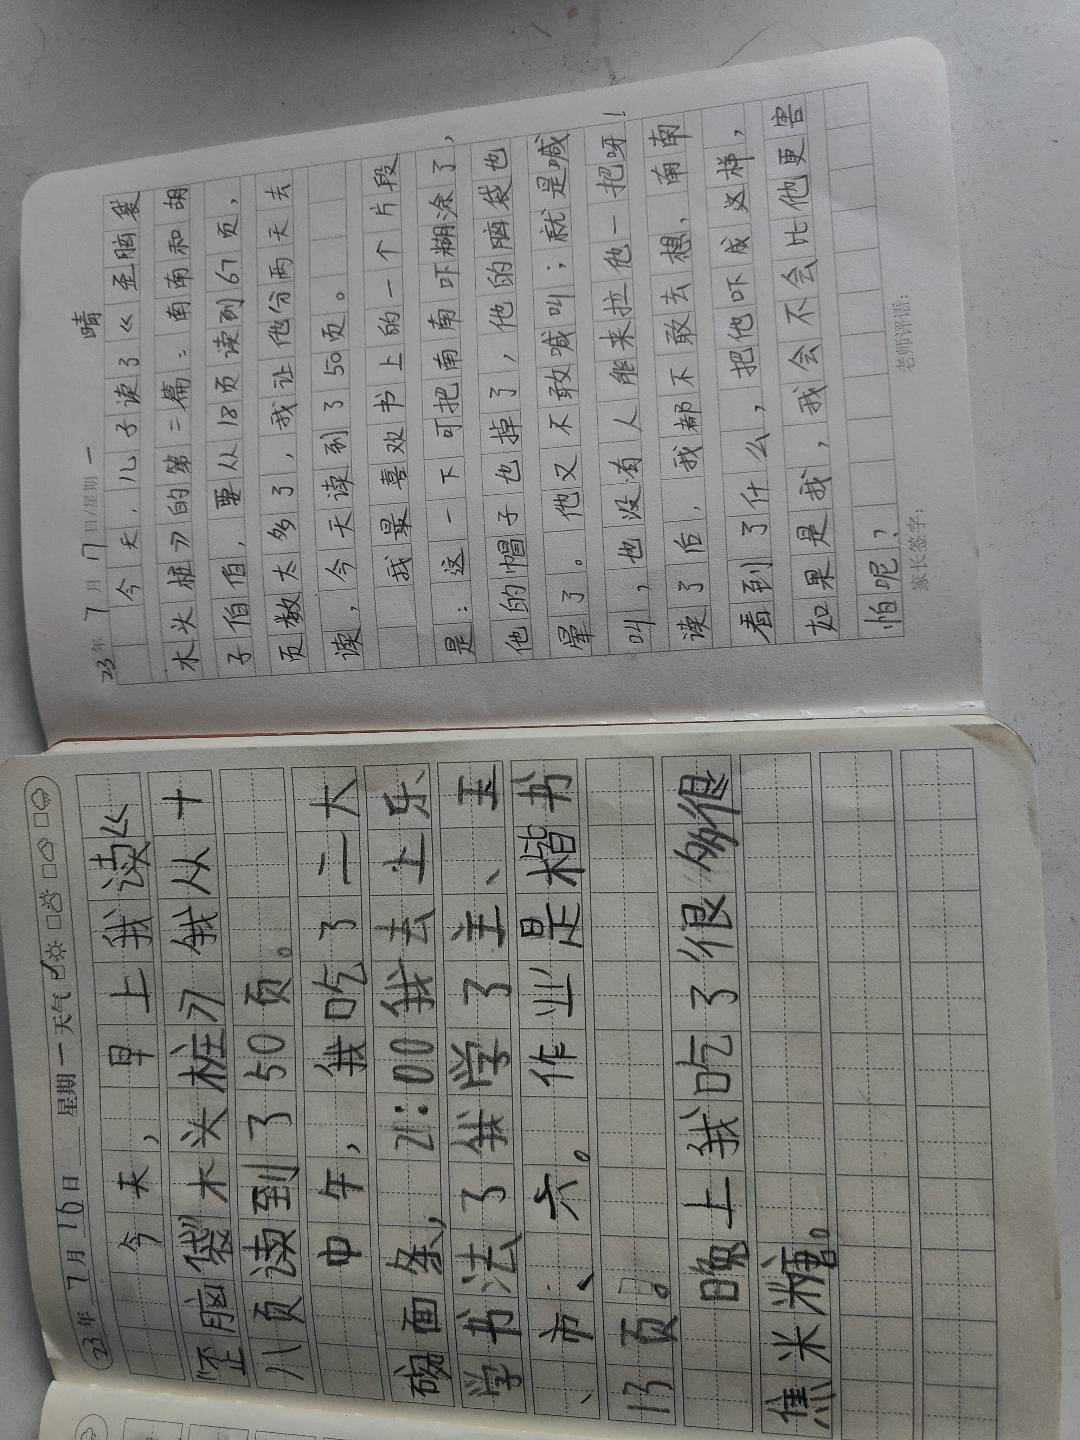 23年 7月 17日/星期 一 晴
今天,儿子读了《歪脑袋
木头桩刃的第二篇:南南和胡
子伯伯,要从18页读到67页,
页数太多了,我让他分两天去
读,今天读到了50页。
我最喜欢书上的一个片段
是:这一下可把南南吓糊涂了,
他的帽子也掉了,他的脑袋也
晕了。他又不敢喊叫;就是喊
叫,也没有人能来拉他一把呀!
读了后,我都不敢去想,南南
看到了什么,把他吓成这样,
如果是我,我会不会比他更害
怕呢?
家长签字: 老师评语:
23年 7月 16日 星期 一 天气
今天,早上我读《
歪脑袋木头桩刃我从十
八页读到了50页。
中午,我吃了一大
碗面条,21:00我去上乐
学书法了我学了主、玉
、市、六。作业是楷书
13页。
晚上我吃了很多很
焦米糖。